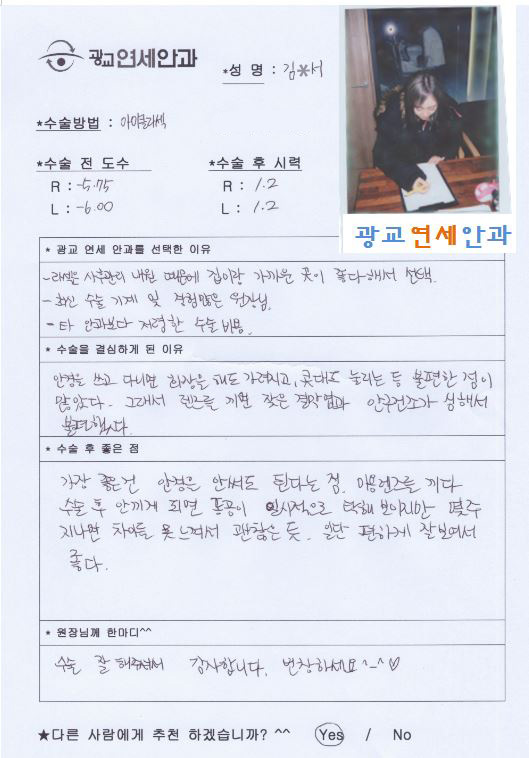 광교연세안과
*성 명 : 김*서
*수술방법 : 아이플라섹
*수술 전 도수
*수술 후 시력
R : -5.75
R : 1.2
L : -6.00
L : 1.2
광교연세안과
* 광교 연세 안과를 선택한 이유
- 라섹은 사후관리 내원 때문에 집이랑 가까운 곳이 좋다해서 선택.
- 최신 수술 기계 및 경험많은 원장님.
- 타 안과보다 저렴한 수술비용.
* 수술을 결심하게 된 이유
안경을 쓰고 다니면 화장을 해도 가려지고, 콧대도 눌리는 등 불편한 점이
많았다. 그래서 렌즈를 끼면 잦은 결막염과 안구건조가 심해서
불편했다.
* 수술 후 좋은 점
가장 좋은건 안경은 안써도 된다는 점. 미용렌즈를 끼다
수술 후 안끼게 되면 동공이 일시적으로 탁해 보이지만 몇주
지나면 차이를 못느껴서 괜찮은 듯. 일단 편하게 잘보여서
좋다.
* 원장님께 한마디^^
수술 잘 해주셔서 감사합니다. 번창하세요^-^♡
★다른 사람에게 추천 하겠습니까? ^^ Yes / No